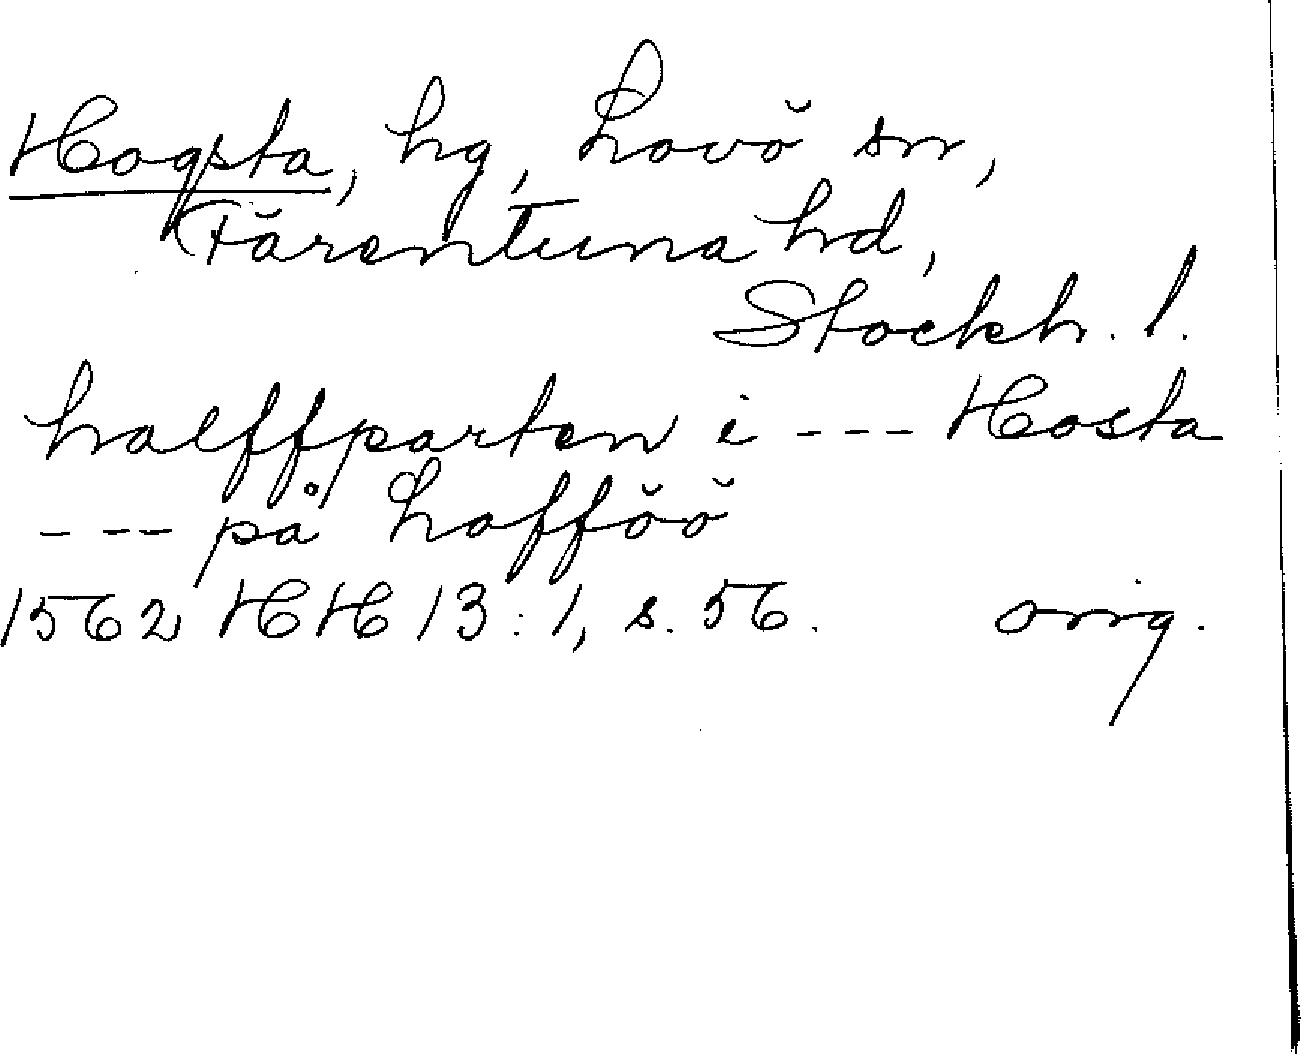 Hogsta, hg, Lovö sn,
Färentuna hd,
Stockh. l.
halffparten i --- Hosta
--- på Lofföö
1562 HH 13:1, s. 56. orig.